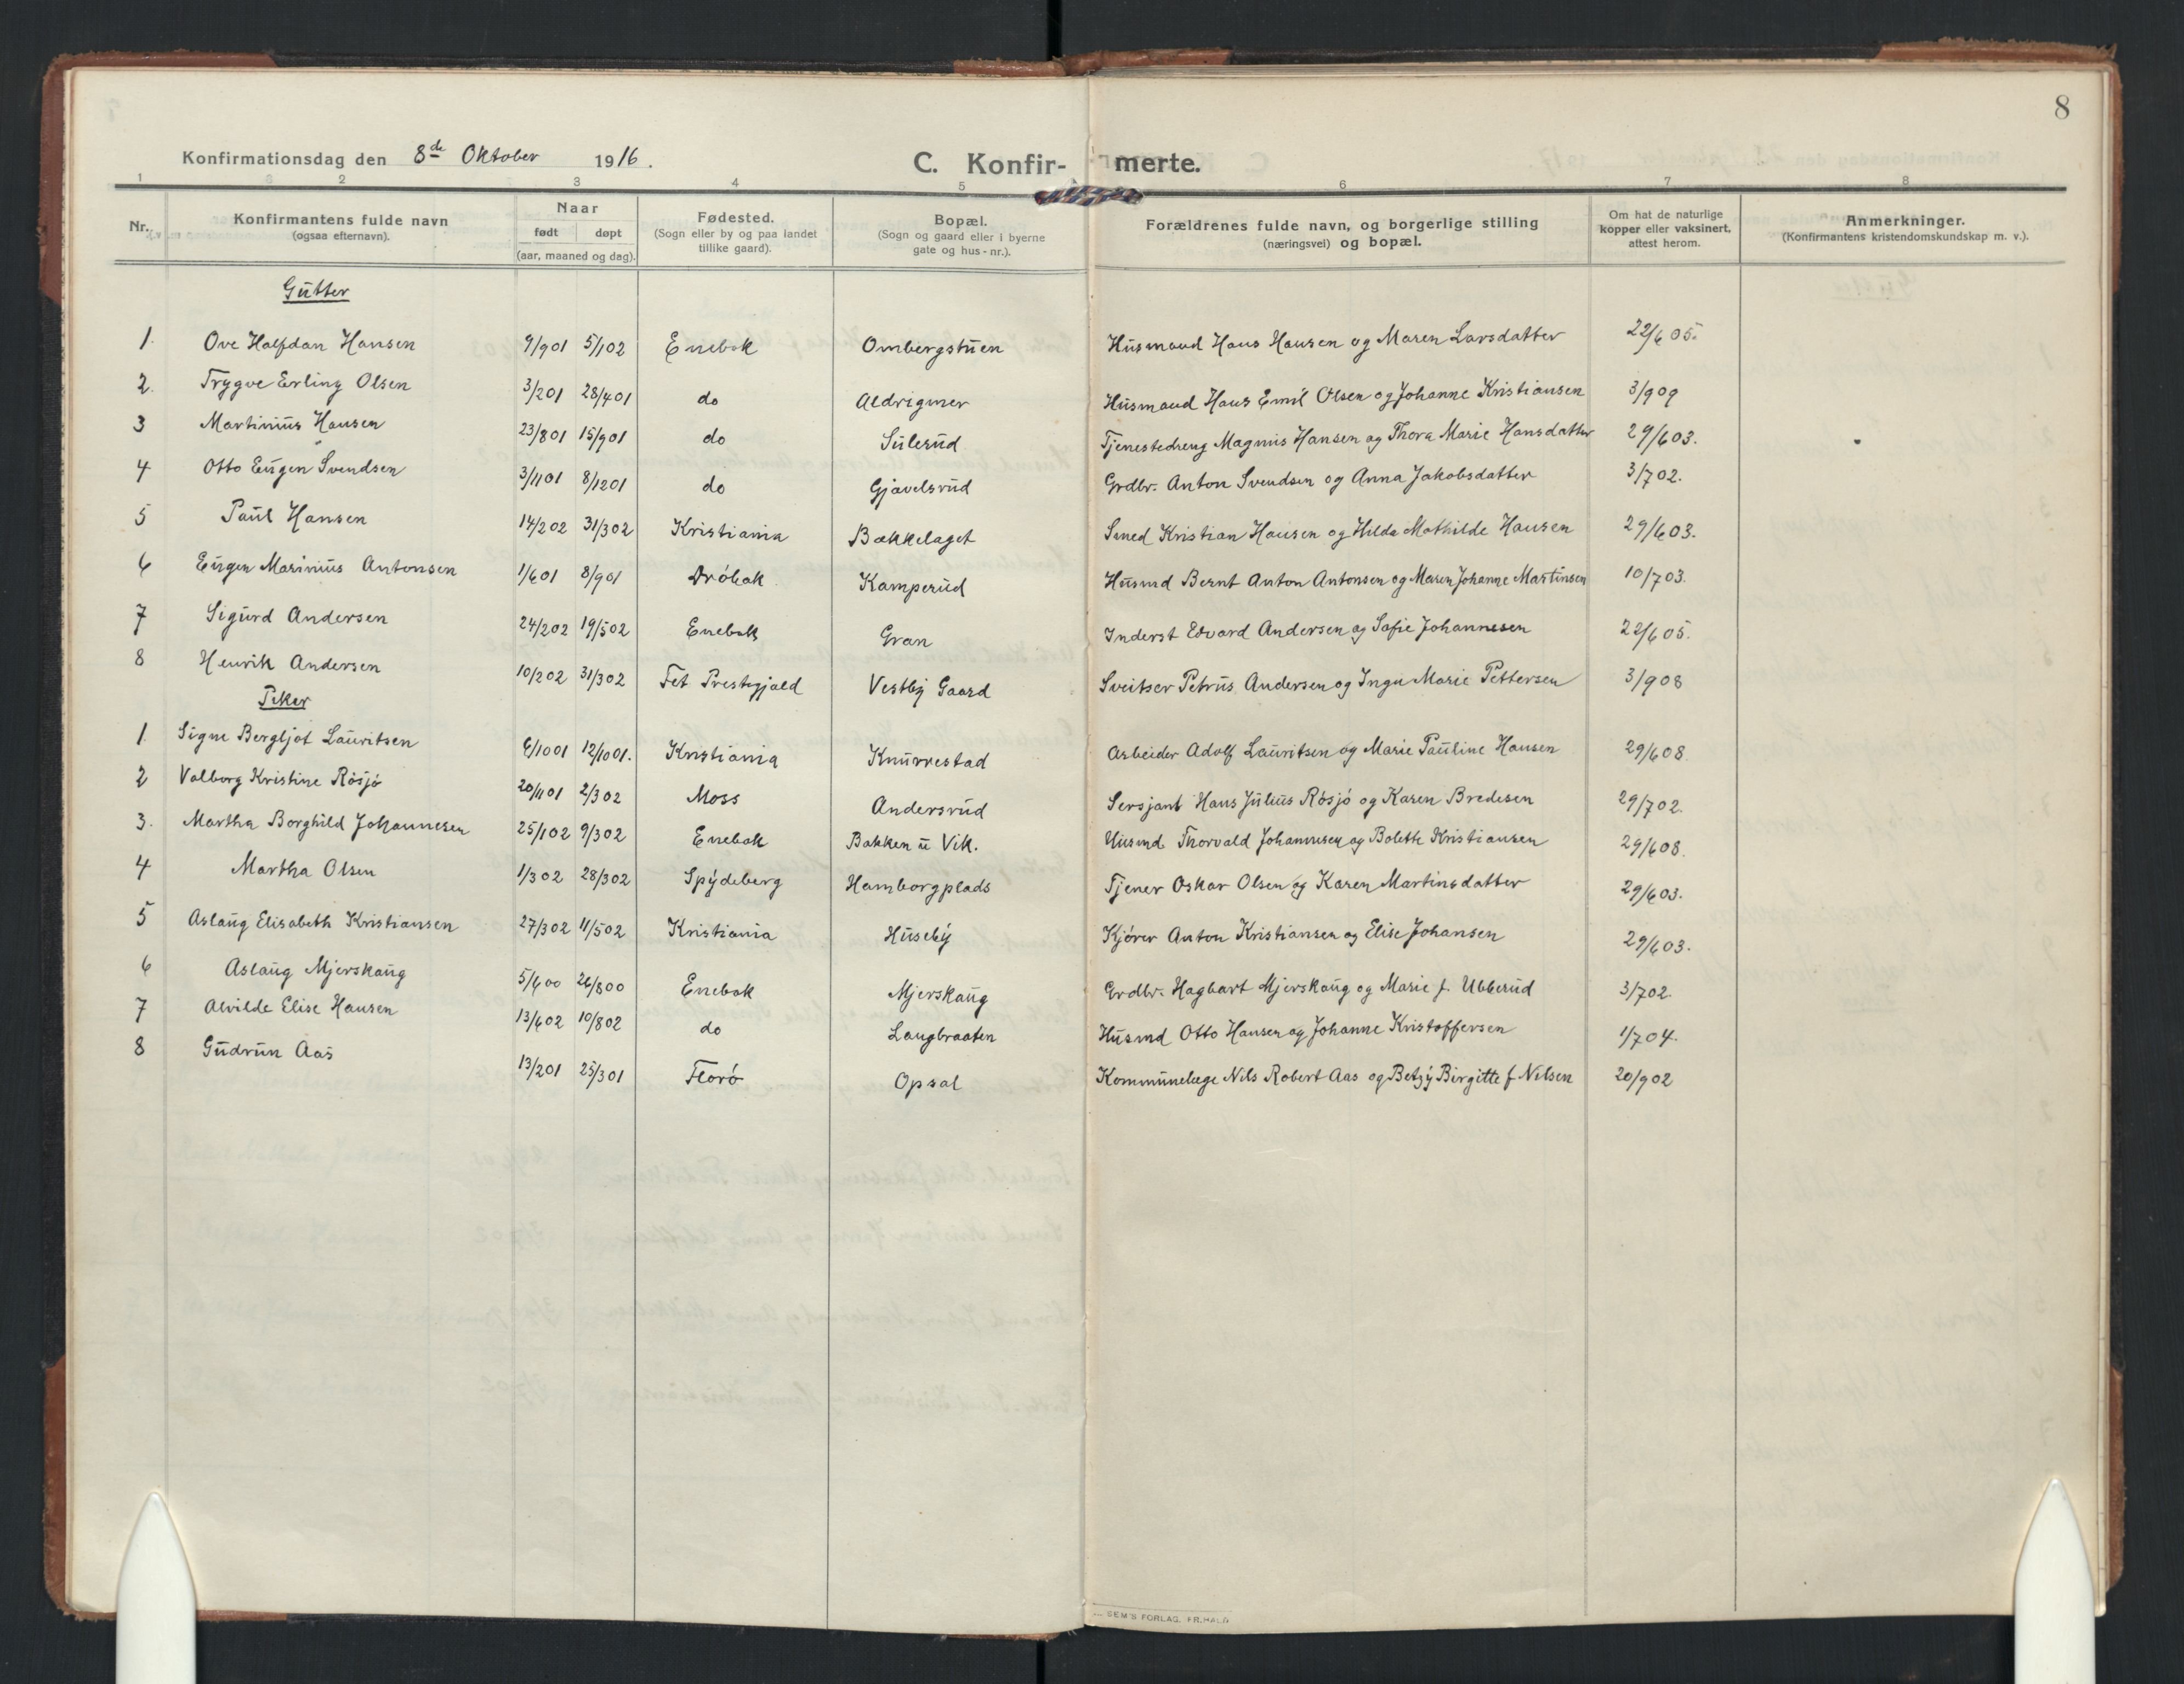 8
Konfirmationsdag den 8de Oktober 1916.
C. Konfir- merte.
1 2 3 4 5 6 7 8
Nr. Konfirmantens fulde navn (ogsaa efternavn). Naar født døpt (aar, maaned og dag). Fødested. (Sogn eller by og paa landet tillike gaard). Bopæl. (Sogn og gaard eller i byerne gate og hus-nr.). Forældrenes fulde navn, og borgerlige stilling (næringsvei) og bopæl. Om hat de naturlige kopper eller vaksinert, attest herom. Anmerkninger. (Konfirmantens kristendomskundskap m. v.).
Gutter
1. Ove Halfdan Hansen 9/901 5/102 Enebak Ombergstuen Husmand Hans Hansen og Maren Larsdatter 22/605.
2. Trygve Erling Olsen 3/201 28/401 do Aldrigmer Husmand Hans Emil Olsen og Johanne Kristiansen 3/909
3 Martinius Hansen 23/801 15/901 do Sulerud Tjenestedreng Magnus Hansen og Thora Marie Hansdatter 29/603.
4 Otto Eugen Svendsen 3/1101 8/1201 do Gjavelsrud Grdbr. Anton Svendsen og Anna Jakobsdatter 3/702.
5 Paul Hansen 14/202 31/302 Kristiania Bakkelaget Smed Kristian Hansen og Hilda Mathilde Hansen 29/603.
6 Eugen Marinius Antonsen 1/601 8/901 Drøbak Kamperud Husmd Bernt Anton Antonsen og Maren Johanne Martinsen 10/703.
7 Sigurd Andersen 24/202 19/502 Enebak Gran Inderst Edvard Andersen og Sofie Johannesen 22/605.
8 Henrik Andersen 10/202 31/302 Fet Prestegjæld Vestby Gaard Sveitser Petrus Andersen og Inga Marie Pettersen 3/908
Piker
1. Signe Bergljot Lauritsen 6/1001 12/1001. Kristiania Knurrestad Arbeider Adolf Lauritsen og Marie Pauline Hansen 29/608.
2 Valborg Kristine Røsjø 20/1101 2/302 Moss Andersrud Sersjant Hans Julius Røsjø og Karen Bredesen 29/702.
3. Martha Borghild Johannesen 25/102 9/302 Enebak Bakken u Vik. Husmd. Thorvald Johannesen og Bolette Kristiansen 29/608.
4 Martha Olsen 1/302 28/302 Spydeberg Hamborgplads Tjener Oskar Olsen og Karen Martinsdatter 29/603.
5 Aslaug Elisabeth Kristiansen 27/302 11/502 Kristiania Huseby Kjører Anton Kristiansen og Elise Johansen 29/603.
6 Aslaug Mjerskaug 5/600 26/800 Enebak Mjerskaug Grdbr. Hagbart Mjerskaug og Marie f. Ubberud 3/702.
7 Alvilde Elise Hansen 13/602 10/802 do Langbraaten Husmd Otto Hansen og Johanne Kristoffersen 1/704.
8 Gudrun Aas 13/201 25/301 Florø Opsal Kommunelæge Nils Robert Aas og Betzy Birgitte f Nilsen 20/902
SEM'S FORLAG, FR.HALD